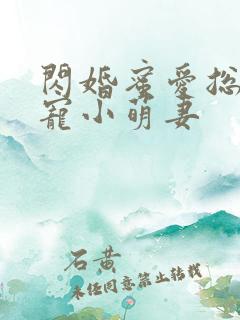 閃婚蜜愛總
寵小萌妻
石黃
未经同意禁止转载